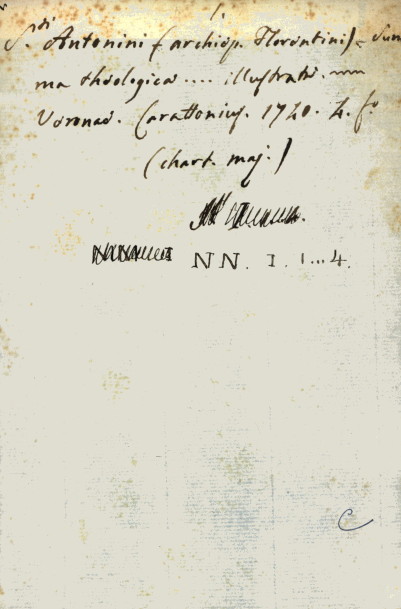 1.
S.ti Antonini (archiep. Florentini) = Sum
ma theologica .... illustrata.
Veronae. Carattonius. 1740. 4. fo.
(chart. maj.)
NN. I. 1...4.
C